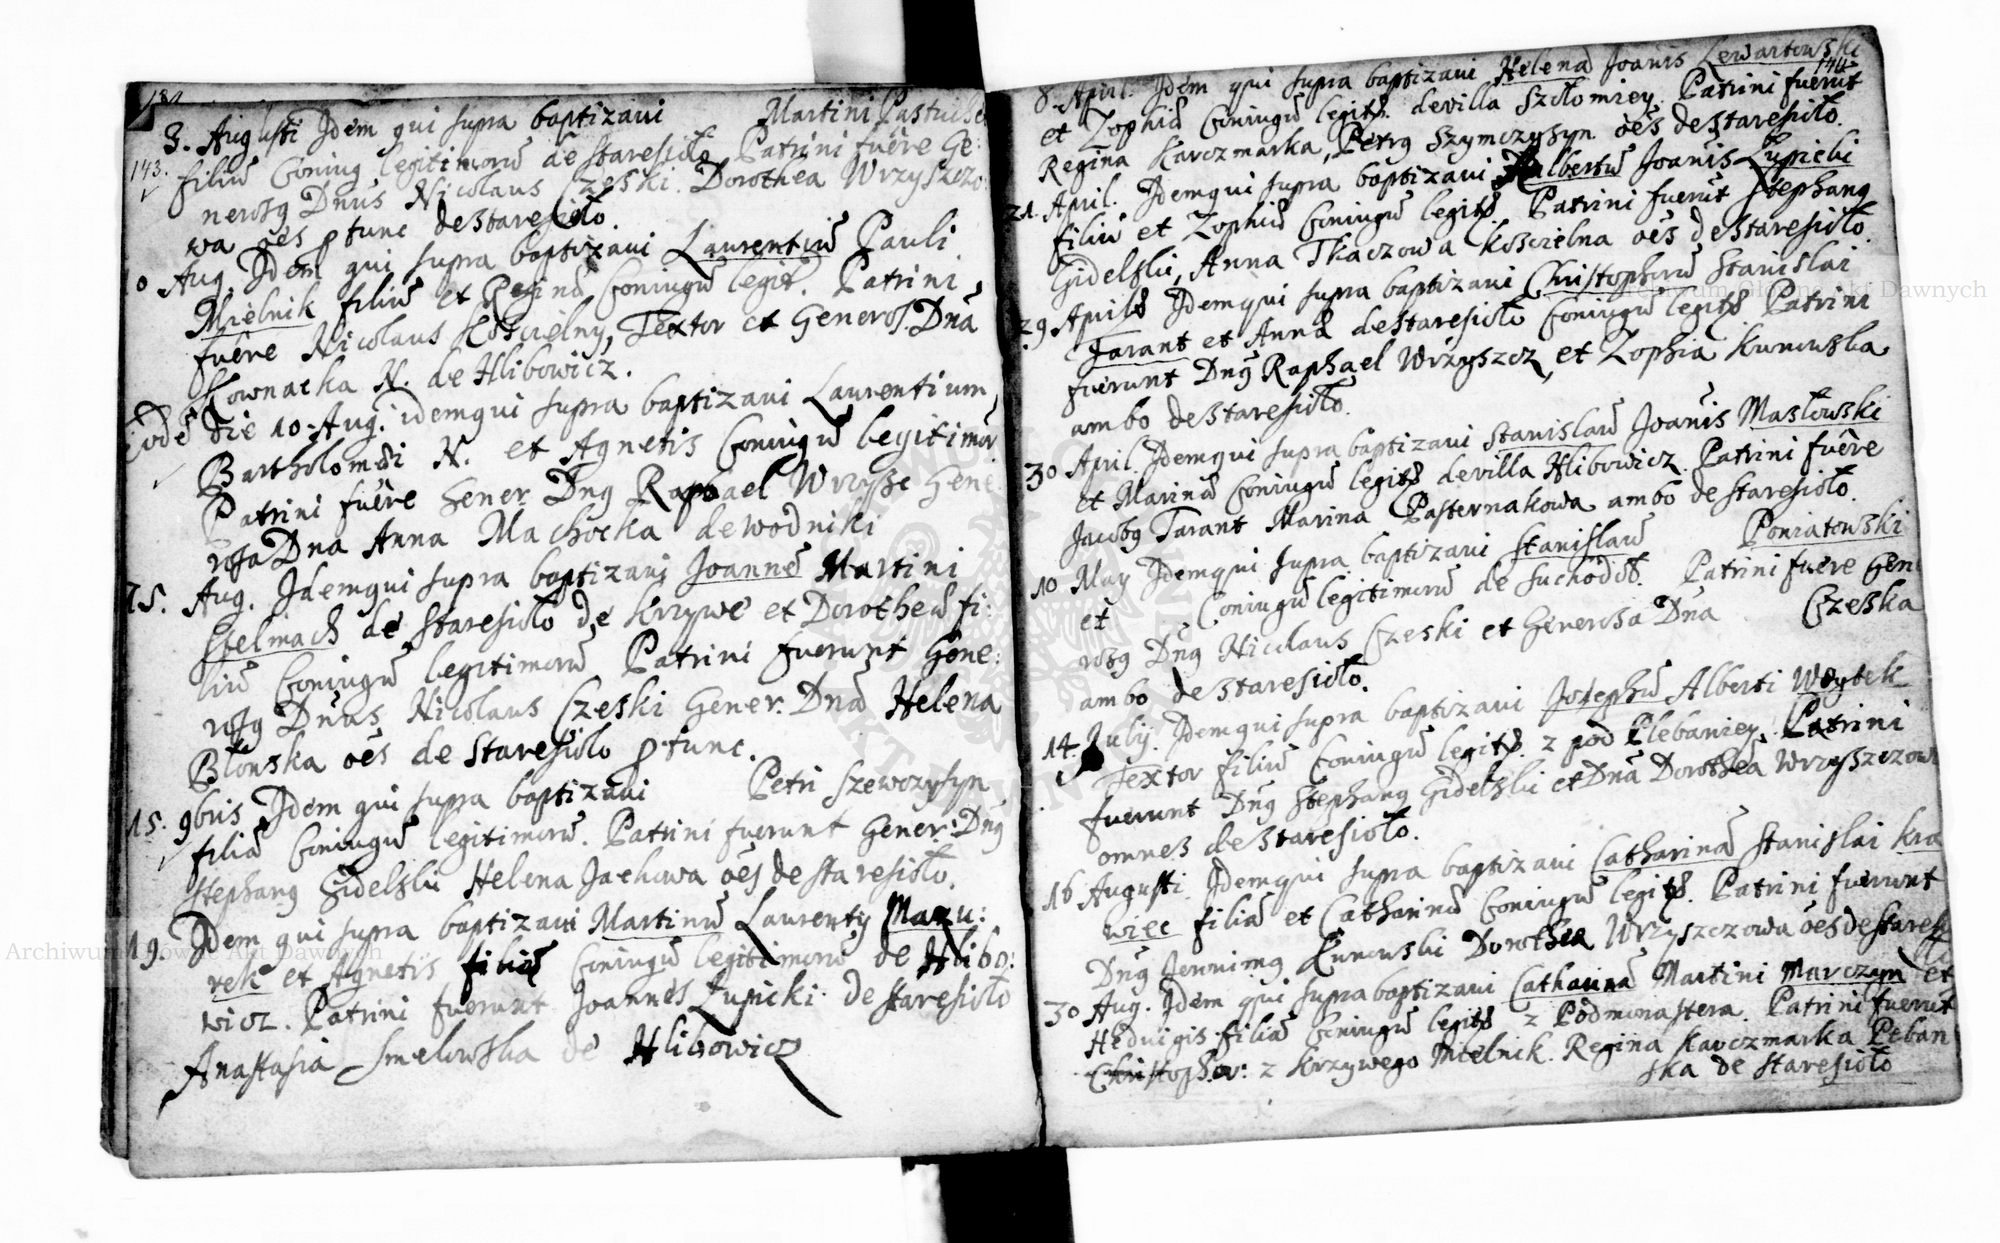 143.
3. Augusti Idem qui supra baptizavi Martini Pastuche
filiū Coniug legitimorū de Staresioło Patrini fuêre Ge:
nerosg Dnūs Nicolaus Czeski. Dorothea Wrzyszczo
wa oēs p tunc de Staresioło
0 Aug. Idem qui supra baptizavi Laurentiū Pauli
Mielnik filiū et Reginā Coniugū legit. Patrini
fuêre Nicolaus Kościelny, Textor et Generos. Dnā
Kownacka N. de Hlibowicz.
die 10. Aug. idemqui supra baptizavi Laurentium
Bartholomæi N. et Agnetis Coniugū legitimor
Patrini fuêre Gener. Dng Raphael Wrzyszc Gene
rosa Dna Anna Machocka de Wodniki
25. Aug. Idemqui supra baptizavi Joannē Martini
Stelmach de Staresioło de Krzywe et Dorotheā fi:
liū Coniugū legitimorū Patrini fuerunt Gene:
rosg Dnūs Nicolaus Czeski Gener. Dnā Helena
Błonska oēs de Staresioło p tunc.
15. 9bris Idem qui supra baptizavi Petri Szewczysyn
filiā Coniugū legitimorū. Patrini fuerunt Gener: Dng
Stephang Gidelski Helena Jackowa oēs de Staresioło.
19. Idem qui supra baptizavi Martinū Laurenty Mazu:
rek et Agnetis filiū Coniugū legitimorū de Hlibo:
wicz. Patrini fuerunt Joannes Łupicki de Staresioło
Anastasia Smelowska de Hlibowicz
144
8. April. Idem qui supra baptizavi Helenā Joanis Lewartowski
et Zophiā Coniugū legitð. de villa Szołomiey. Patrini fuerūt
Regina Karczmarka, Petrg Szymczysyn oēs de Staresioło.
21. April. Idemqui supra baptizavi Albertū Joanis Łupicki
filiū et Zophiā Coniugū legitð Patrini fuerūt Stephang
Gidelski, Anna Tkaczowa Koscielna oēs de Staresioło.
29 Aprilð Idemqui supra baptizavi Christophorū Stanislai
Tarant et Annā de Staresioło Coniugū legitð Patrini
fuerunt Dng Raphael Wrzyszcz, et Zophia Kunowska
ambo de Staresioło.
30 April. Idemqui supra baptizavi Stanislaū Joanis Masłowski
et Marinā Coniugū legitð de villa Hlibowicz. Patrini fuêre
Jacobg Tarant Marina Pasternakowa ambo de Staresioło.
10 May Idemqui supra baptizavi Stanislaū Poniatowski
et Coniugū legitimorū de Suchodoł. Patrini fuêre Gene
rosg Dng Nicolaus Czeski et Generosa Dnā Czeska
ambo de Staresioło.
14. July. Idemqui supra baptizavi Josephū Alberti Woytek
Textor filiū Coniugū legitð. z pod Plebaniey. Patrini
fuerunt Dng Stephang Gidelski et Dnā Dorothea Wrzyszczow
omnes de Staresioło.
16 Augusti. Idemqui supra baptizavi Catharinā Stanislai Kra
wiec filiā et Catharinā Coniugū legitð. Patrini fuerunt
Dng Jeronimg Kunowski Dorothea Wrzyszczowa oēs de Staresio
30 Aug. Idem qui supra baptizavi Catharinā Martini Marczyn et
Heduigis filiā Coniugū legitð z Podmonastera. Patrini fuerūt
Christophor: z Krzywego Mielnik. Regina Karczmarka Pleban
ska de Staresioło
Archiwum Główne Akt Dawnych
Archiwum Główne Akt Dawnych